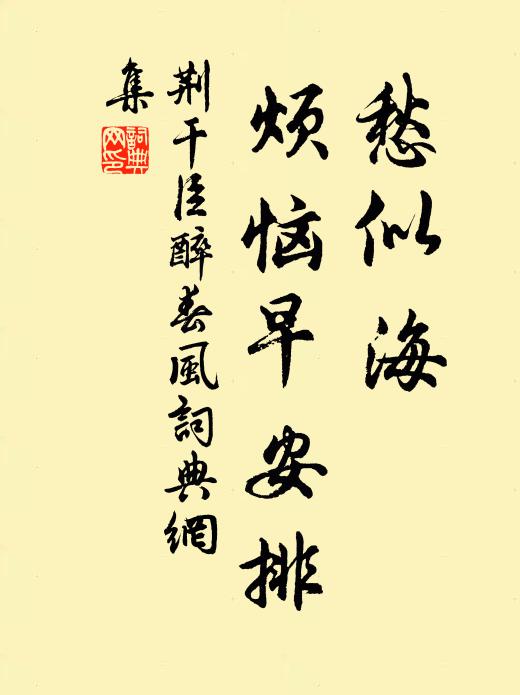 愁似海
烦恼早安排
荆干臣醉春风詞典網
集
詞典
网印